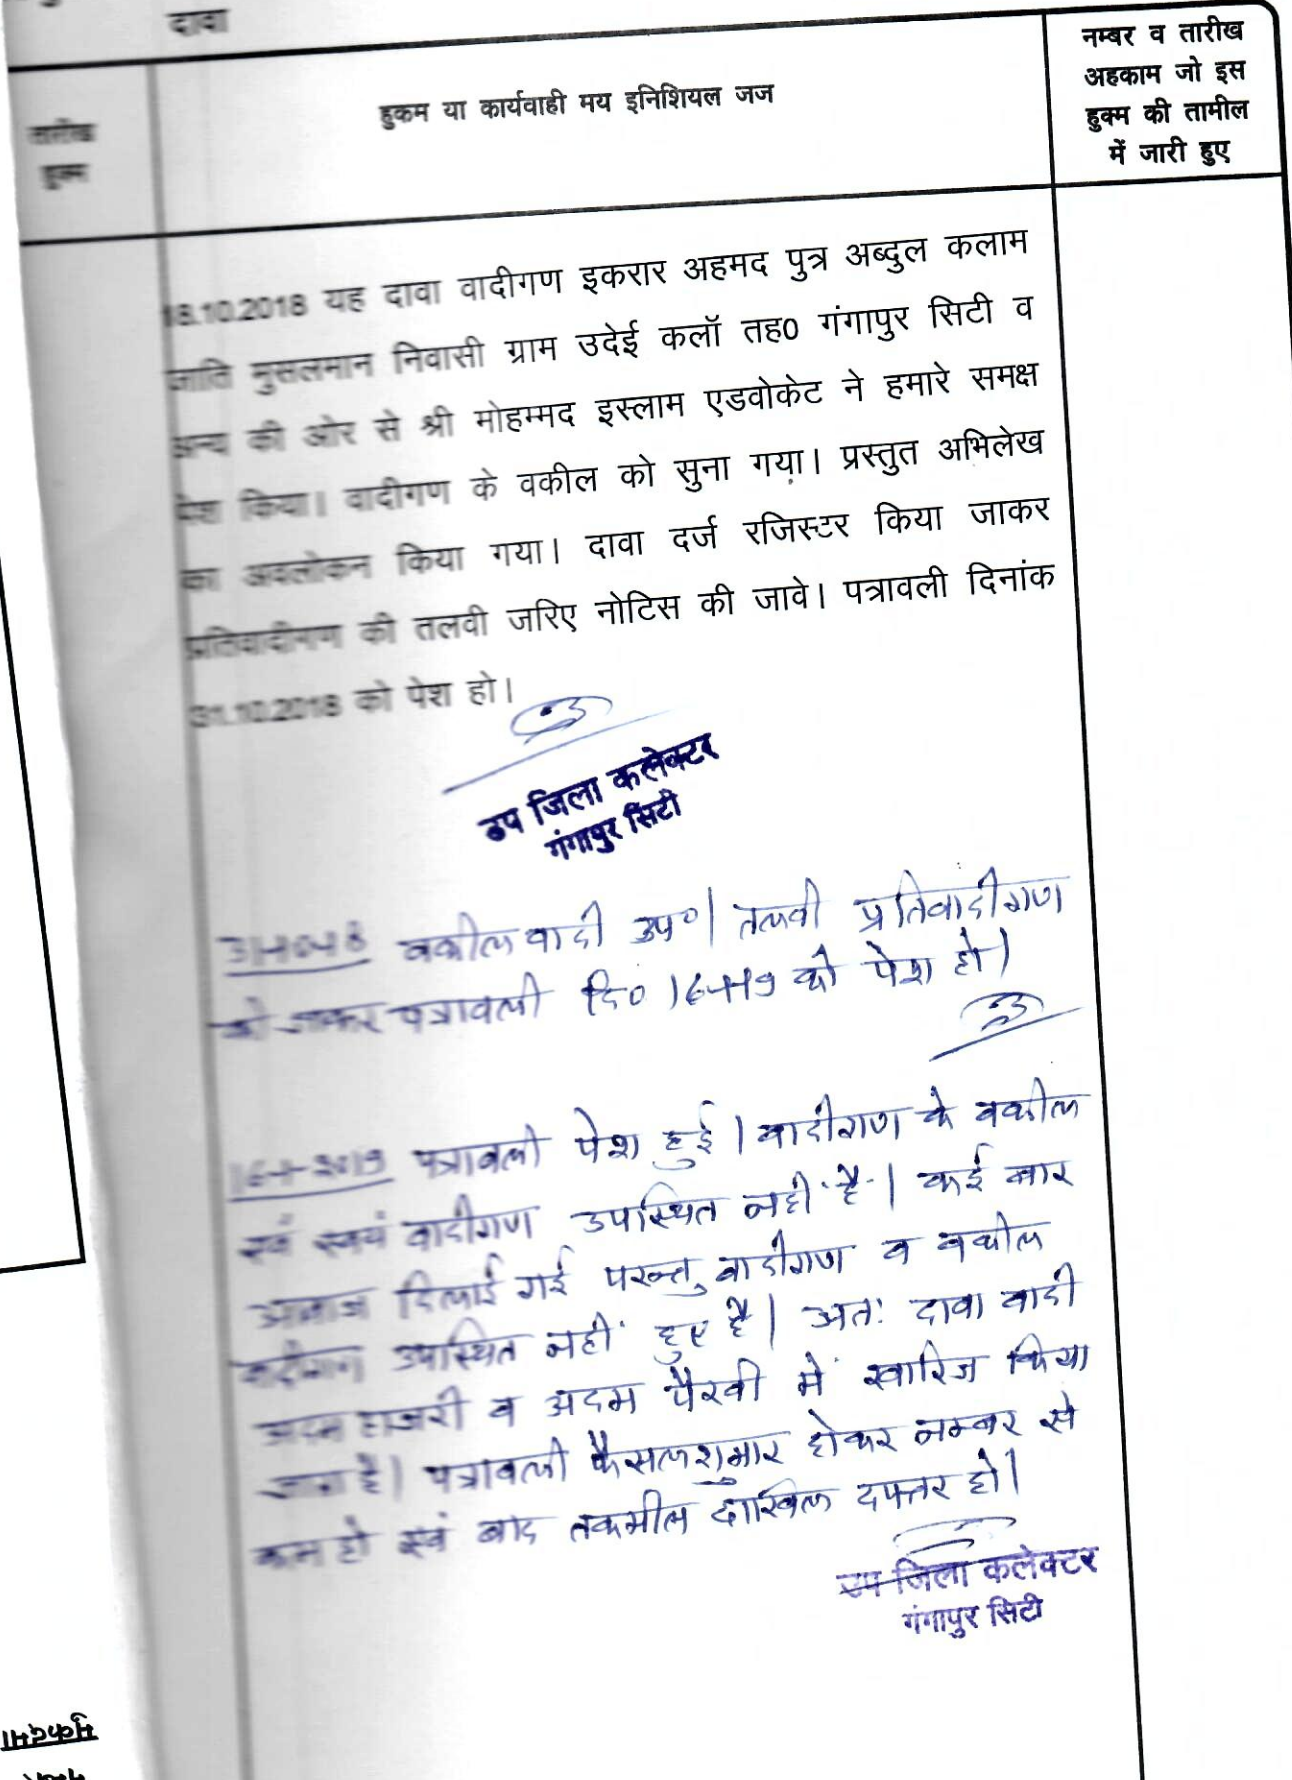 दावा
तारीख
हुक्म
हुकम या कार्यवाही मय इनिशियल जज
नम्बर व तारीख
अहकाम जो इस
हुक्म की तामील
में जारी हुए
18.10.2018 यह दावा वादीगण इकरार अहमद पुत्र अब्दुल कलाम
जाति मुसलमान निवासी ग्राम उदेई कलॉ तह0 गंगापुर सिटी व
अन्य की ओर से श्री मोहम्मद इस्लाम एडवोकेट ने हमारे समक्ष
पेश किया। वादीगण के वकील को सुना गया। प्रस्तुत अभिलेख
का अवलोकन किया गया। दावा दर्ज रजिस्टर किया जाकर
प्रतिवादीगण की तलवी जरिए नोटिस की जावे। पत्रावली दिनांक
31.10.2018 को पेश हो।
उप जिला कलेक्टर
गंगापुर सिटी
31-10-18 वकील वादी उप०। तलवी प्रतिवादीगण
की जाकर पत्रावली दि० 16-1-19 को पेश हो।
16-1-2019 पत्रावली पेश हुई। वादीगण के वकील
एवं स्वयं वादीगण उपस्थित नहीं है। कई बार
आवाज दिलाई गई परन्तु वादीगण व वकील
वादीगण उपस्थित नहीं हुए है। अतः दावा वादी
अदम हाजरी व अदम पैरवी में खारिज किया
जाता है। पत्रावली फैसलशुमार होकर नम्बर से
कम हो एवं बाद तकमील दाखिल दफ्तर हो।
उप जिला कलेक्टर
गंगापुर सिटी
मुकदमा